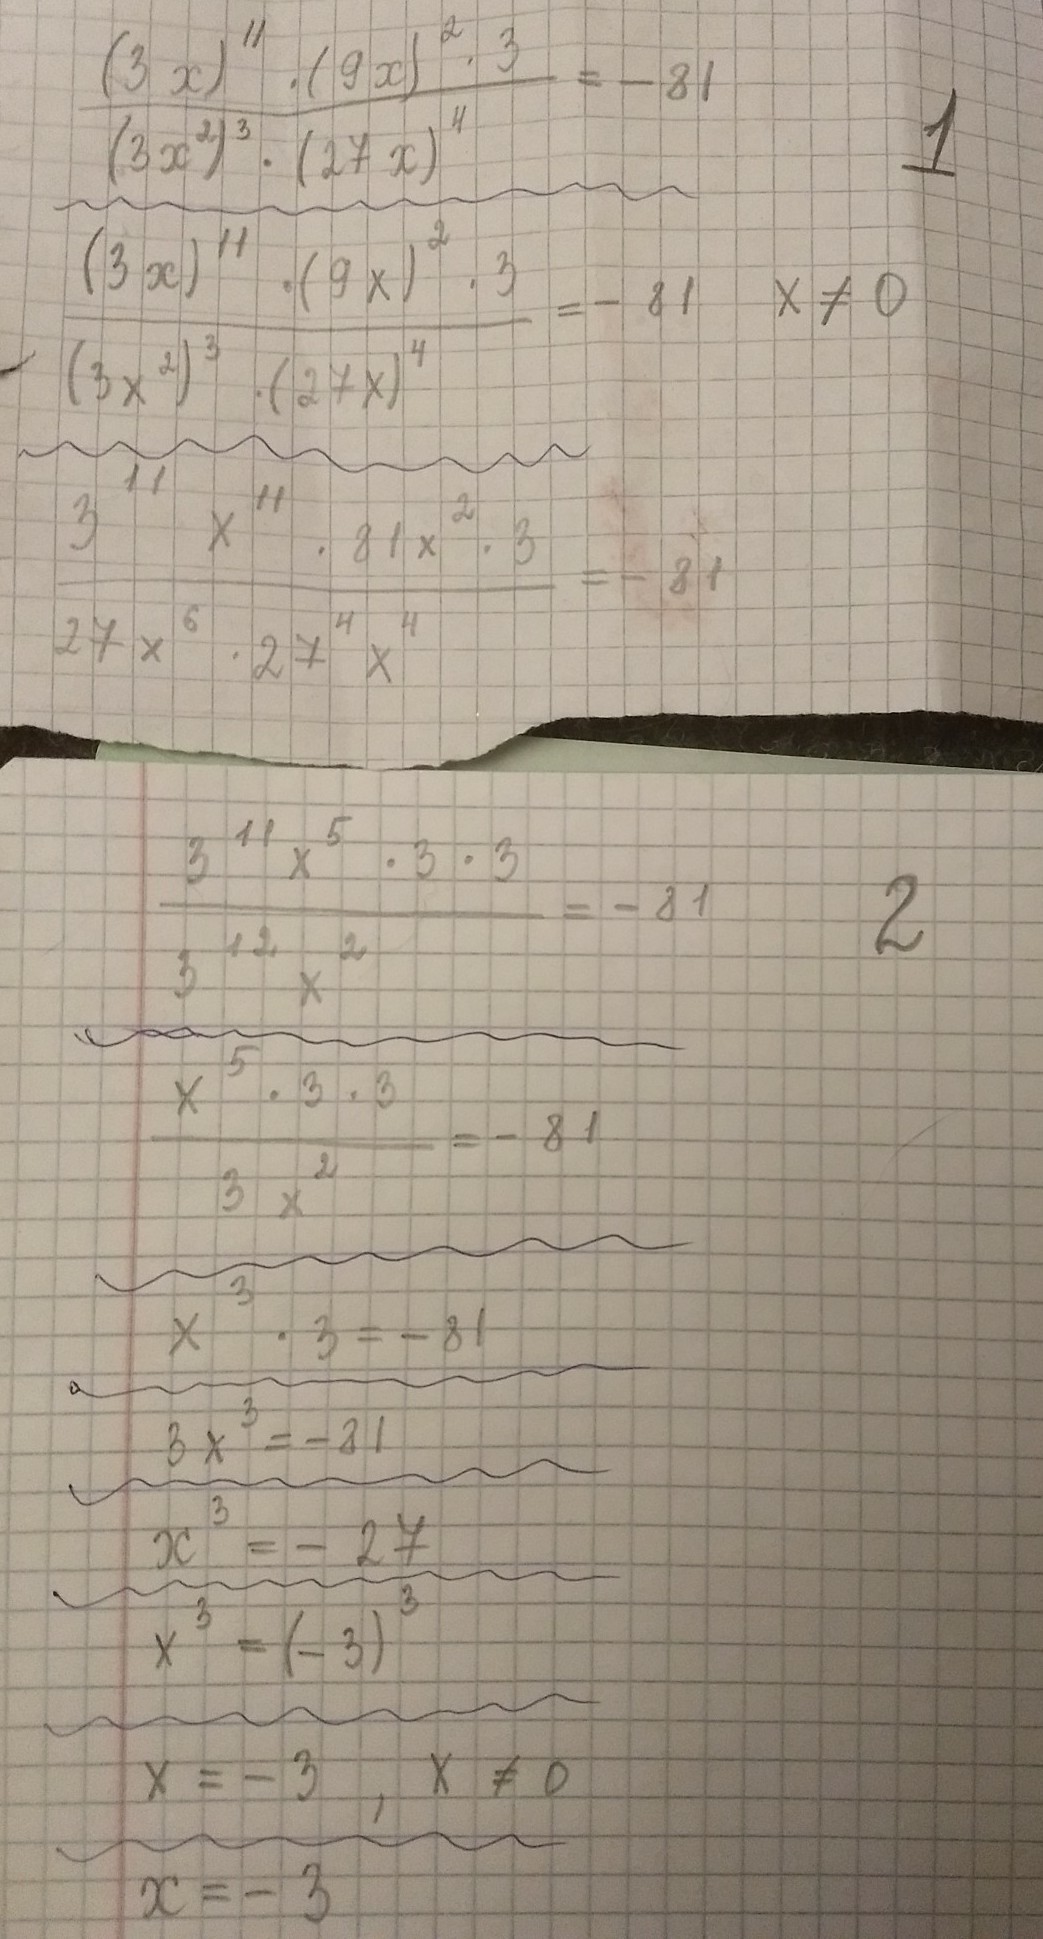 (3x)¹¹ · (9x)² · 3 / (3x²)³ · (27x)⁴ = - 81
1
(3x)¹¹ · (9x)² · 3 / (3x²)³ · (27x)⁴ = - 81 x ≠ 0
3¹¹ x¹¹ · 81x² · 3 / 27x⁶ · 27⁴ x⁴ = - 81
3¹¹ x⁵ · 3 · 3 / 3¹² x² = - 81
2
x⁵ · 3 · 3 / 3 x² = - 81
x³ · 3 = - 81
3x³ = - 81
x³ = - 27
x³ = (- 3)³
x = - 3 , x ≠ 0
x = - 3